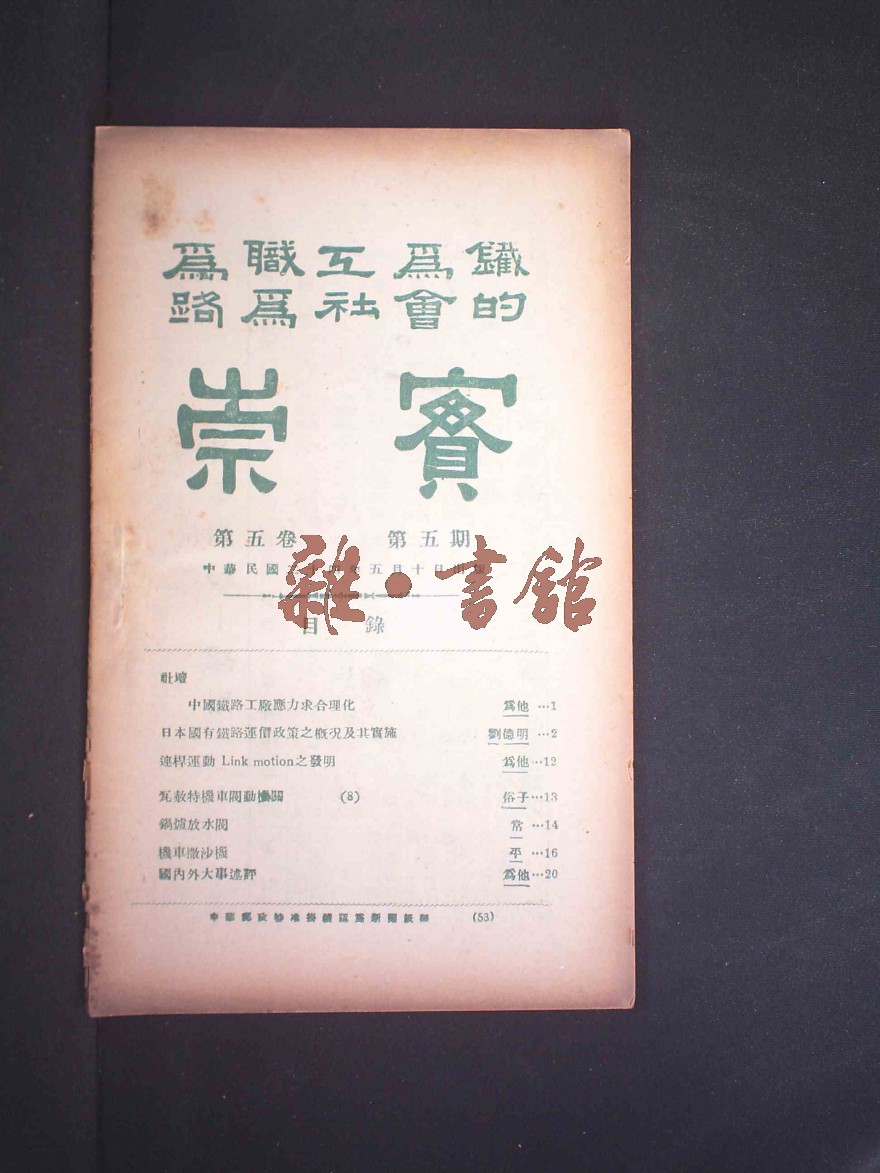 爲職工爲鐵
路爲社會的
崇實
第五卷 第五期
中華民國二十四年五月十日出版
雜·書館
目錄
社壇
中國鐵路工廠應力求合理化 爲他…1
日本國有鐵路運價政策之概况及其實施 劉德明…2
連桿運動 Link motion之發明 爲他…12
瓦赦特機車閥動機關 (8) 俗子…13
鍋爐放水閥 常…14
機車撒沙機 平…16
國內外大事述評 爲他…20
中華郵政特准掛號認爲新聞紙類 (53)